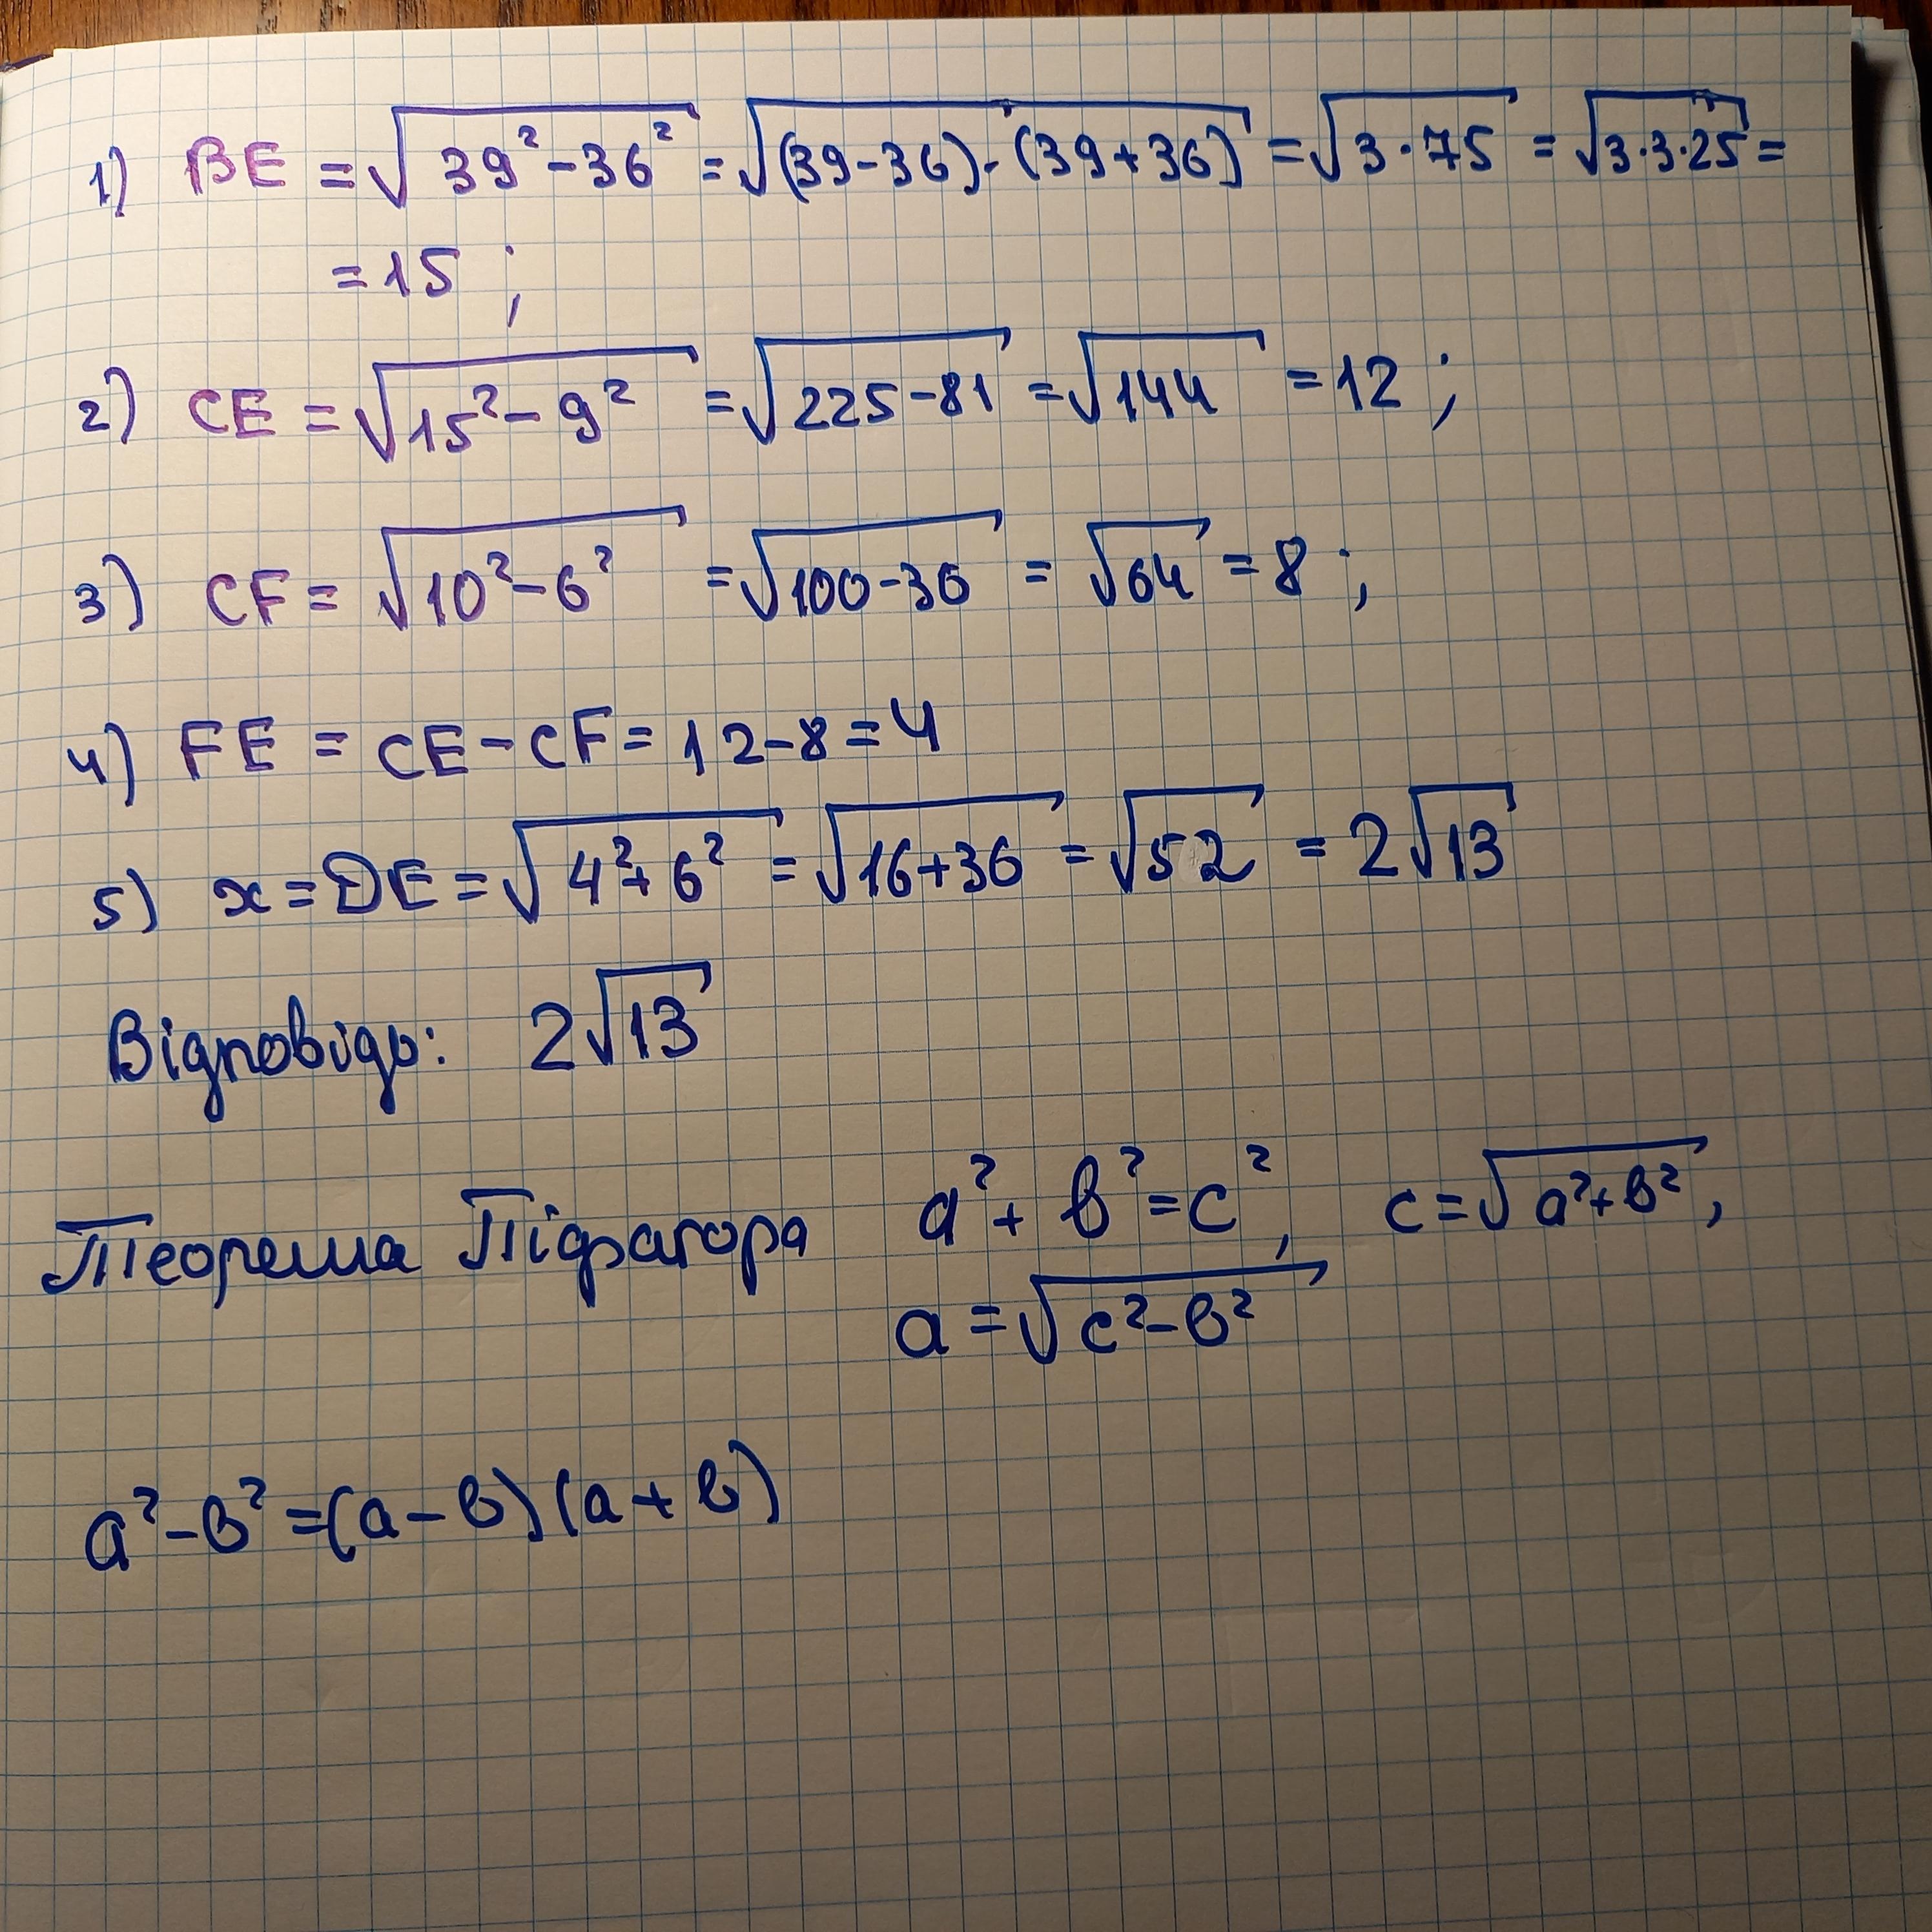 1) BE = √(39² - 36²) = √((39-36)·(39+36)) = √(3·75) = √(3·3·25) =
= 15 ;
2) CE = √(15² - 9²) = √(225-81) = √144 = 12 ;
3) CF = √(10² - 6²) = √(100-36) = √64 = 8 ;
4) FE = CE - CF = 12 - 8 = 4
5) x = DE = √(4² + 6²) = √(16+36) = √52 = 2√13
Відповідь: 2√13
Теорема Піфагора a² + b² = c², c = √(a²+b²),
a = √(c²-b²)
a² - b² = (a - b)(a + b)